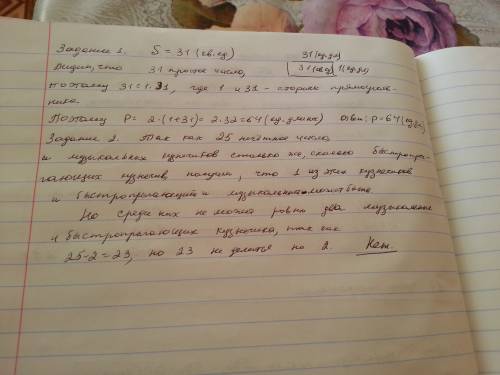 Задание 1. S = 31 (кв.ед) 31 (ед.дл)
Видим, что 31 простое число, 31 (кв.ед) 1 (ед.дл)
поэтому 31 = 1·31, где 1 и 31 - стороны прямоуголь-
ника.
Поэтому P = 2·(1+31) = 2·32 = 64 (ед. длины) Ответ: P = 64 (ед.дл)
Задание 2. Так как 25 нечётное число
и музыкальных кузнечиков столько же, сколько быстропры-
гающих кузнечик. получим, что 1 из них кузнечиков
и быстропрыгающий и музыкальный может быть.
Но среди них не может ровно два музыкальных
и быстропрыгающих кузнечика, так как
25-2=23, но 23 не делится на 2.